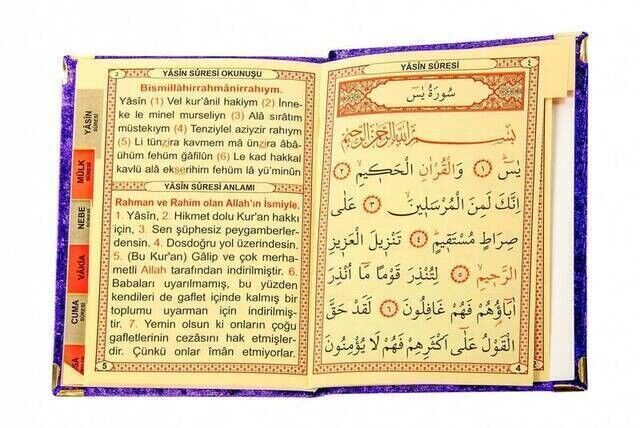 YÂSİN SÛRESİ OKUNUŞU
Bismillâhirrahmânirrahıym.
Yâsîn (1) Vel kur'ânil hakiym (2) İnne-
ke le minel murseliyn (3) Alâ sırâtım
müstekıym (4) Tenziylel aziyzir rahıym
(5) Li tünzira kavmem mâ ünzira âbâ-
ühüm fehüm ğâfilûn (6) Le kad hakkal
kavlü alâ ekserihim fehüm lâ yü'minûn
YÂSİN SÛRESİ ANLAMI
Rahman ve Rahim olan Allah'ın İsmiyle.
1. Yâsîn, 2. Hikmet dolu Kur'an hakkı
için, 3. Sen şüphesiz peygamberler-
densin. 4. Dosdoğru yol üzerindesin.
5. (Bu Kur'an) Gâlip ve çok merha-
metli Allah tarafından indirilmiştir. 6.
Babaları uyarılmamış, bu yüzden
kendileri de gaflet içinde kalmış bir
toplumu uyarman için indirilmiş-
tir. 7. Yemin olsun ki onların çoğu
gafletlerinin cezasını hak etmişler-
dir. Çünkü onlar îman etmiyorlar.
5
YÂSİN SÛRESİ
MÜLK SÛRESİ
NEBE SÛRESİ
VÂKIA SÛRESİ
CUMA SÛRESİ
SA
YÂSİN SÛRESİ
٤
سُورَةُ يٰسٓ
بِسْمِ اللّٰهِ الرَّحْمٰنِ الرَّحِيمِ
يٰسٓ ١ وَالْقُرْاٰنِ الْحَكِيمِ ٢
اِنَّكَ لَمِنَ الْمُرْسَلِينَ ٣ عَلٰى
صِرَاطٍ مُسْتَقِيمٍ ٤ تَنْزِيلَ الْعَزِيزِ
الرَّحِيمِ ٥ لِتُنْذِرَ قَوْمًا مَٓا اُنْذِرَ
اٰبَٓاؤُهُمْ فَهُمْ غَافِلُونَ ٦ لَقَدْ حَقَّ
الْقَوْلُ عَلٰٓى اَكْثَرِهِمْ فَهُمْ لَا يُؤْمِنُونَ
4
2